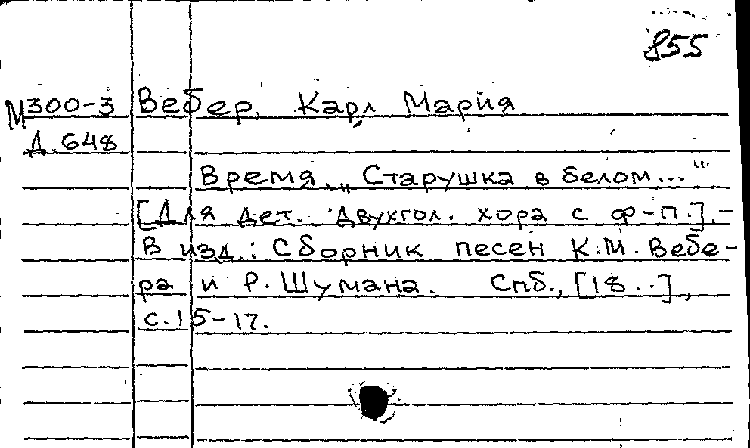 855
М300-3 Вебер, Карл Мария
Д.648
Время. „Старушка в белом..."
[Для дет. двухгол. хора с ф-п.].-
В изд.: Сборник песен К.М. Вебе-
ра и Р. Шумана. Спб., [18..],
с.15-17.